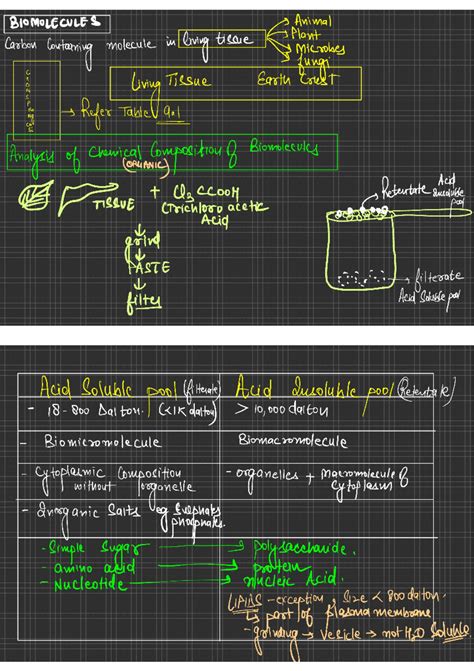 BIOMOLECULES
Carbon Containing molecule in living tissue
Animal
Plant
Microbes
fungi
Living Tissue Earth Crust
Refer Table 9.1
Analysis of Chemical Composition of Biomolecules
(ORGANIC)
TISSUE + Cl3CCOOH
(Trichloro acetic
Acid
grind
PASTE
filter
Retentate Acid
insoluble
pool
filterate
Acid Soluble pool
Acid Soluble pool (filterate) Acid Insoluble pool (Retentate)
- 18-800 Dalton. (<1K dalton) > 10,000 dalton
- Biomicromolecule Biomacromolecule
- Cytoplasmic Composition - organelles + macromolecule of
without organelle cytoplasm
- Inorganic Salts eg Sulphates
phosphates.
- Simple Sugar polysaccharide.
- amino acid protein
- Nucleotide nucleic Acid.
LIPIDS - exception, Size < 800 dalton.
part of plasma membrane
- grinding → vesicle → not H2O Soluble